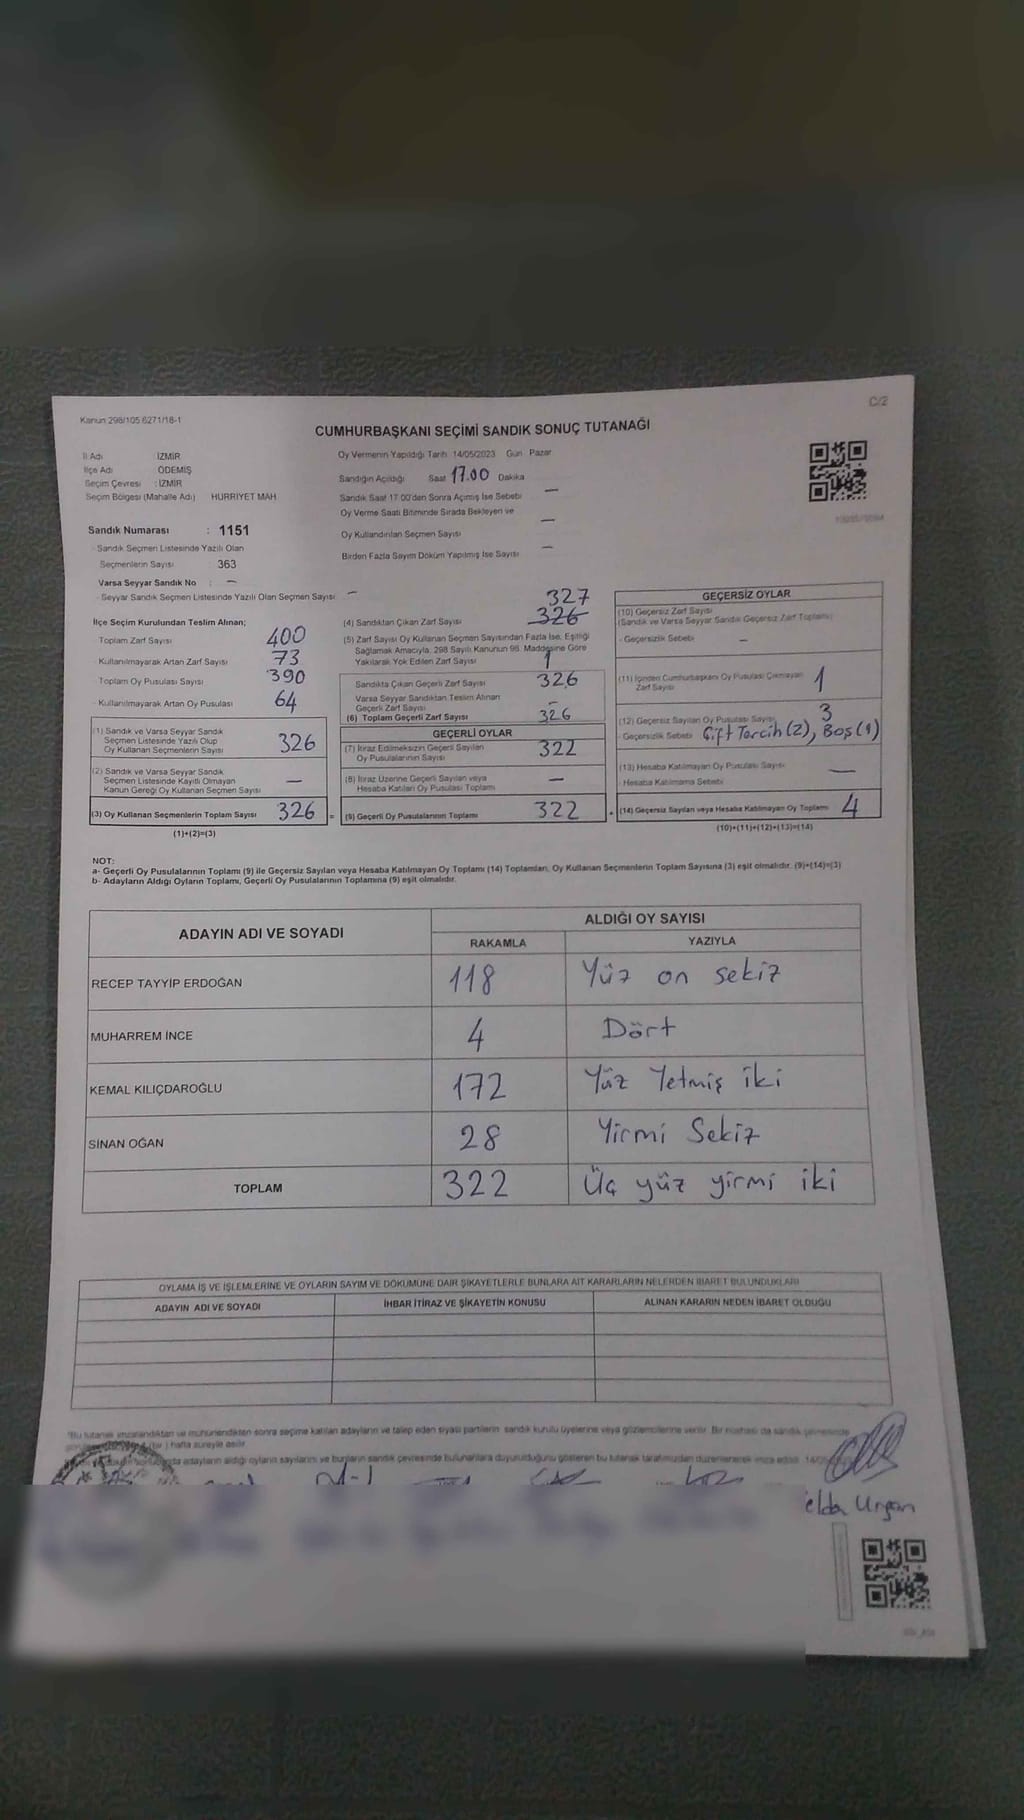 Kanun 298/105 6271/18-1
C/2
CUMHURBAŞKANI SEÇİMİ SANDIK SONUÇ TUTANAĞI
İl Adı İZMİR
İlçe Adı ÖDEMİŞ
Seçim Çevresi : İZMİR
Seçim Bölgesi (Mahalle Adı) HÜRRİYET MAH
Sandık Numarası : 1151
Sandık Seçmen Listesinde Yazılı Olan
Seçmenlerin Sayısı 363
Varsa Seyyar Sandık No : -
Seyyar Sandık Seçmen Listesinde Yazılı Olan Seçmen Sayısı -
Oy Vermenin Yapıldığı Tarih 14/05/2023 Gün Pazar
Sandığın Açıldığı Saat 17.00 Dakika
Sandık Saat 17:00'den Sonra Açılmış İse Sebebi -
Oy Verme Saati Bitiminde Sırada Bekleyen ve
Oy Kullandırılan Seçmen Sayısı -
Birden Fazla Sayım Döküm Yapılmış İse Sayısı -
İlçe Seçim Kurulundan Teslim Alınan;
Toplam Zarf Sayısı 400
Kullanılmayarak Artan Zarf Sayısı 73
Toplam Oy Pusulası Sayısı 390
Kullanılmayarak Artan Oy Pusulası 64
(1) Sandık ve Varsa Seyyar Sandık
Seçmen Listesinde Yazılı Olup
Oy Kullanan Seçmenlerin Sayısı 326
(2) Sandık ve Varsa Seyyar Sandık
Seçmen Listesinde Kayıtlı Olmayan
Kanun Gereği Oy Kullanan Seçmen Sayısı -
(3) Oy Kullanan Seçmenlerin Toplam Sayısı 326 =
(1)+(2)=(3)
327
(4) Sandıktan Çıkan Zarf Sayısı 326
(5) Zarf Sayısı Oy Kullanan Seçmen Sayısından Fazla İse, Eşitliği
Sağlamak Amacıyla, 298 Sayılı Kanunun 98. Maddesine Göre
Yakılarak Yok Edilen Zarf Sayısı 1
Sandıkta Çıkan Geçerli Zarf Sayısı 326
Varsa Seyyar Sandıktan Teslim Alınan
Geçerli Zarf Sayısı -
(6) Toplam Geçerli Zarf Sayısı 326
GEÇERLİ OYLAR
(7) İtiraz Edilmeksizin Geçerli Sayılan
Oy Pusulalarının Sayısı 322
(8) İtiraz Üzerine Geçerli Sayılan veya
Hesaba Katılan Oy Pusulası Toplamı -
(9) Geçerli Oy Pusulalarının Toplamı 322 +
GEÇERSİZ OYLAR
(10) Geçersiz Zarf Sayısı
(Sandık ve Varsa Seyyar Sandık Geçersiz Zarf Toplamı)
- Geçersizlik Sebebi -
(11) İçinden Cumhurbaşkanı Oy Pusulası Çıkmayan
Zarf Sayısı 1
(12) Geçersiz Sayılan Oy Pusulası Sayısı 3
- Geçersizlik Sebebi Çift Tercih (2), Boş (1)
(13) Hesaba Katılmayan Oy Pusulası Sayısı -
Hesaba Katılmama Sebebi
(14) Geçersiz Sayılan veya Hesaba Katılmayan Oy Toplamı 4
(10)+(11)+(12)+(13)=(14)
NOT:
a- Geçerli Oy Pusulalarının Toplamı (9) ile Geçersiz Sayılan veya Hesaba Katılmayan Oy Toplamı (14) Toplamları, Oy Kullanan Seçmenlerin Toplam Sayısına (3) eşit olmalıdır. (9)+(14)=(3)
b- Adayların Aldığı Oyların Toplamı, Geçerli Oy Pusulalarının Toplamına (9) eşit olmalıdır.
ADAYIN ADI VE SOYADI
ALDIĞI OY SAYISI
RAKAMLA YAZIYLA
RECEP TAYYİP ERDOĞAN 118 Yüz on sekiz
MUHARREM İNCE 4 Dört
KEMAL KILIÇDAROĞLU 172 Yüz Yetmiş iki
SİNAN OĞAN 28 Yirmi Sekiz
TOPLAM 322 Üç yüz yirmi iki
OYLAMA İŞ VE İŞLEMLERİNE VE OYLARIN SAYIM VE DÖKÜMÜNE DAİR ŞİKAYETLERLE BUNLARA AİT KARARLARIN NELERDEN İBARET BULUNDUKLARI
ADAYIN ADI VE SOYADI İHBAR İTİRAZ VE ŞİKAYETİN KONUSU ALINAN KARARIN NEDEN İBARET OLDUĞU
"Bu tutanak imzalandıktan ve mühürlendikten sonra seçime katılan adayların ve talep eden siyasi partilerin sandık kurulu üyelerine veya gözlemcilerine verilir. Bir nüshası da sandık çevresinde
(bir) hafta süreyle asılır.
adayların aldığı oyların sayılarını ve bunların sandık çevresinde bulunanlara duyurulduğunu gösteren bu tutanak tarafımızdan düzenlenerek imza edildi. 14/
elda Urgan